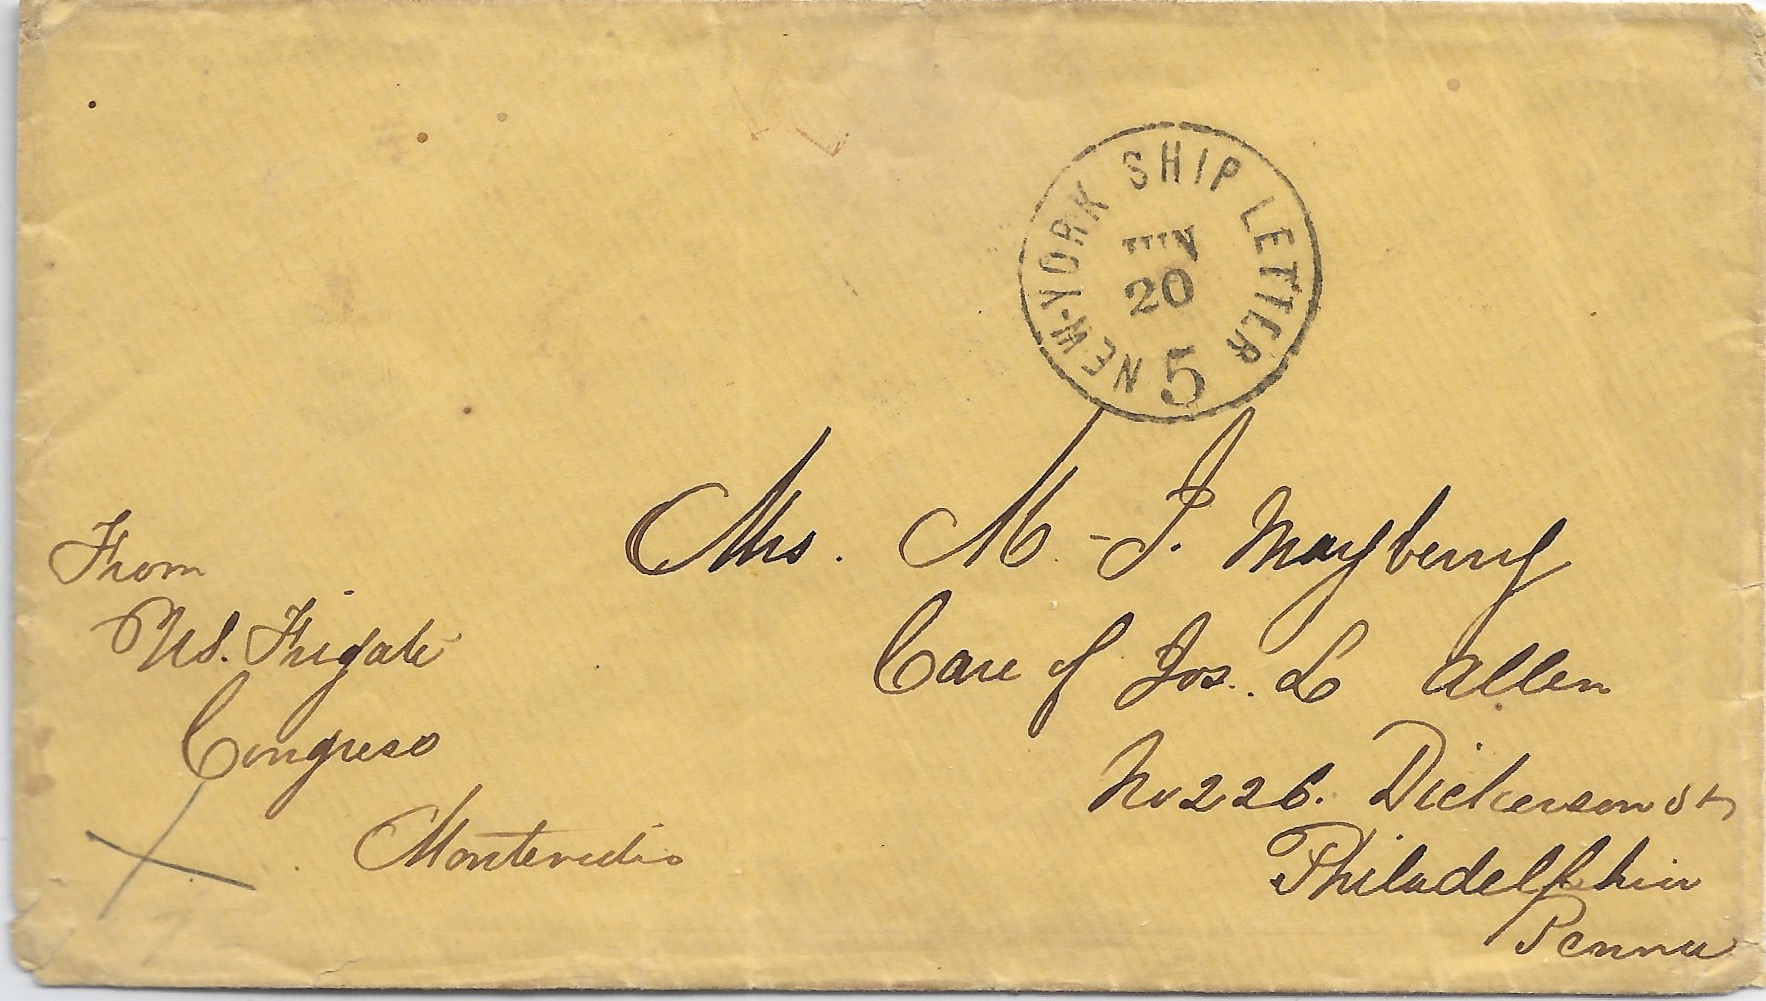 NEW-YORK SHIP LETTER
JUN
20
5
Mrs. M - J. Mayberry
Care of Jos. L Allen
No 226. Dickerson St
Philadelphia
Penna
From
US. Frigate
Congress
Montevideo